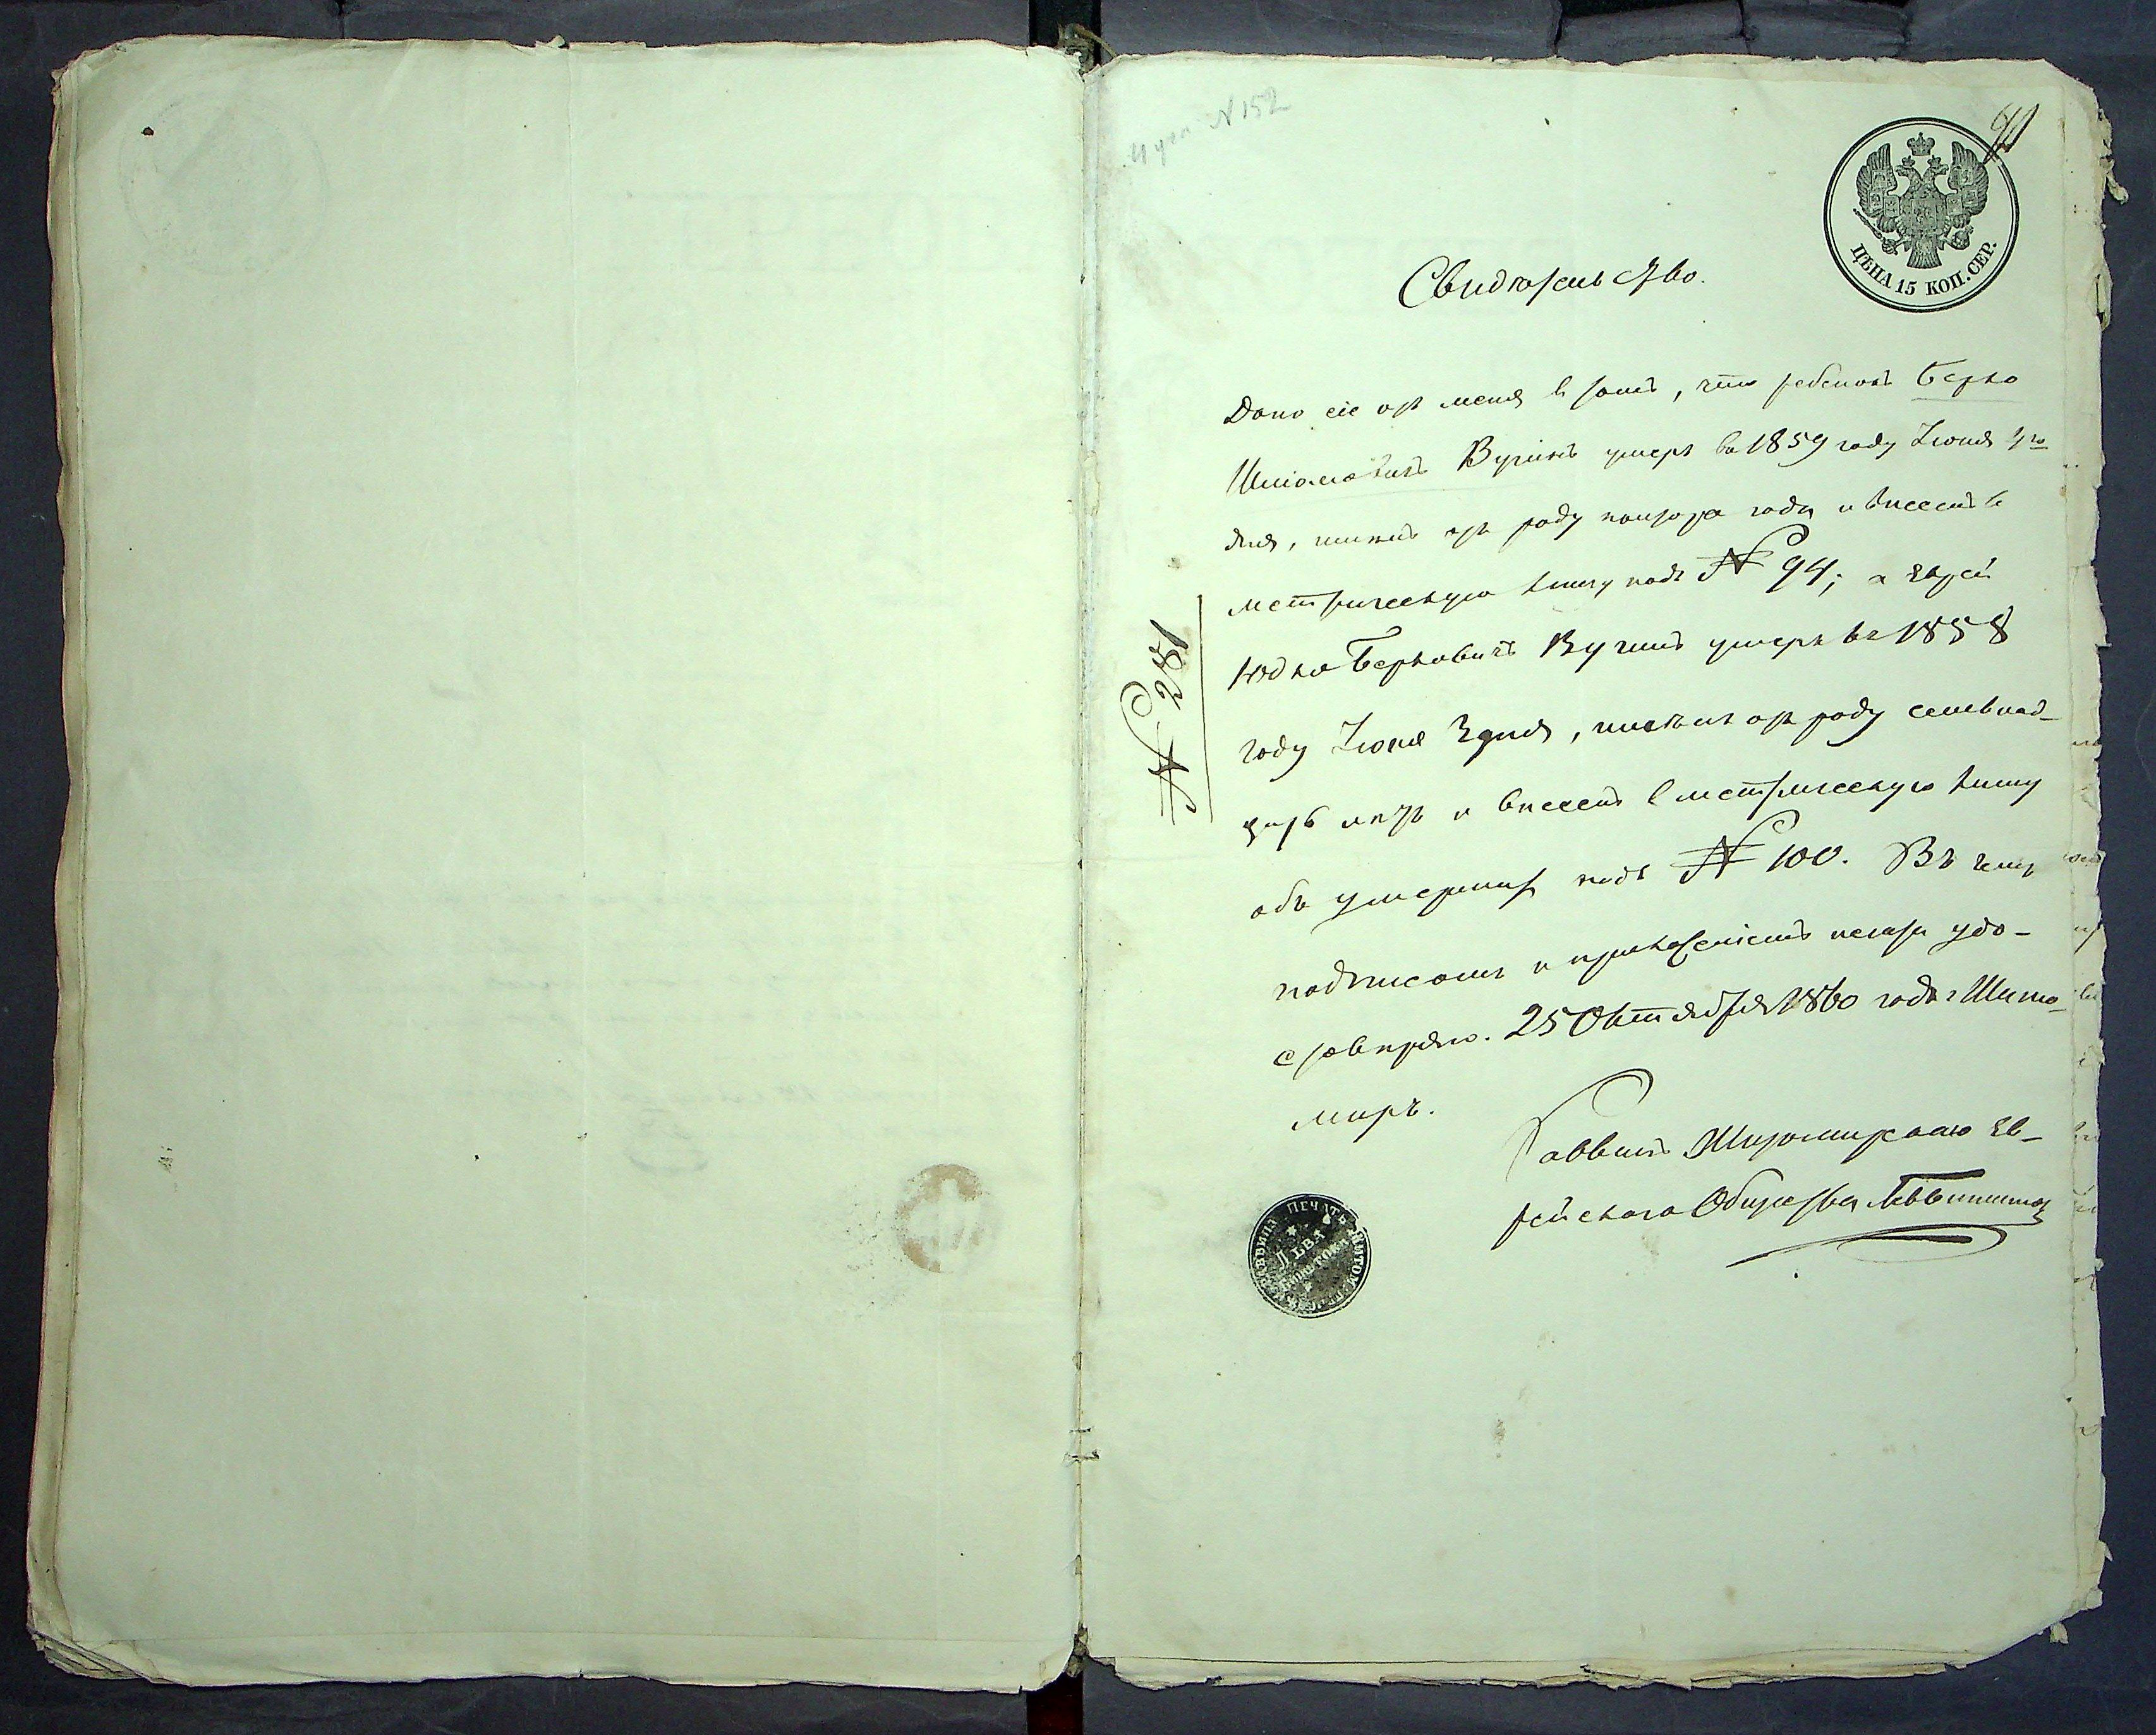 N 152
ЦѢНА 15 КОП. СЕР.
Свидѣтельство.
Дано сіе отъ меня въ томъ, что ребенокъ Берко
Вугинъ умеръ въ 1859 году Іюня
дня, отъ роду полтора года и внесенъ въ
метрическую книгу подъ № 94; а еврей
Юдко Берковичъ Вугинъ умеръ въ 1858
году Іюня дня, отъ роду семьнад-
цать лѣтъ и внесенъ в метрическую книгу
объ умершихъ подъ № 100. Въ чемъ
подписомъ и приложеніемъ печати удо-
стовѣряю. 25 Октября 1860 года г Жито-
миръ.
Раввинъ Житомирскаго Ев-
рейскаго Общества
№ 281
ПЕЧАТЬ
ЛЬВА